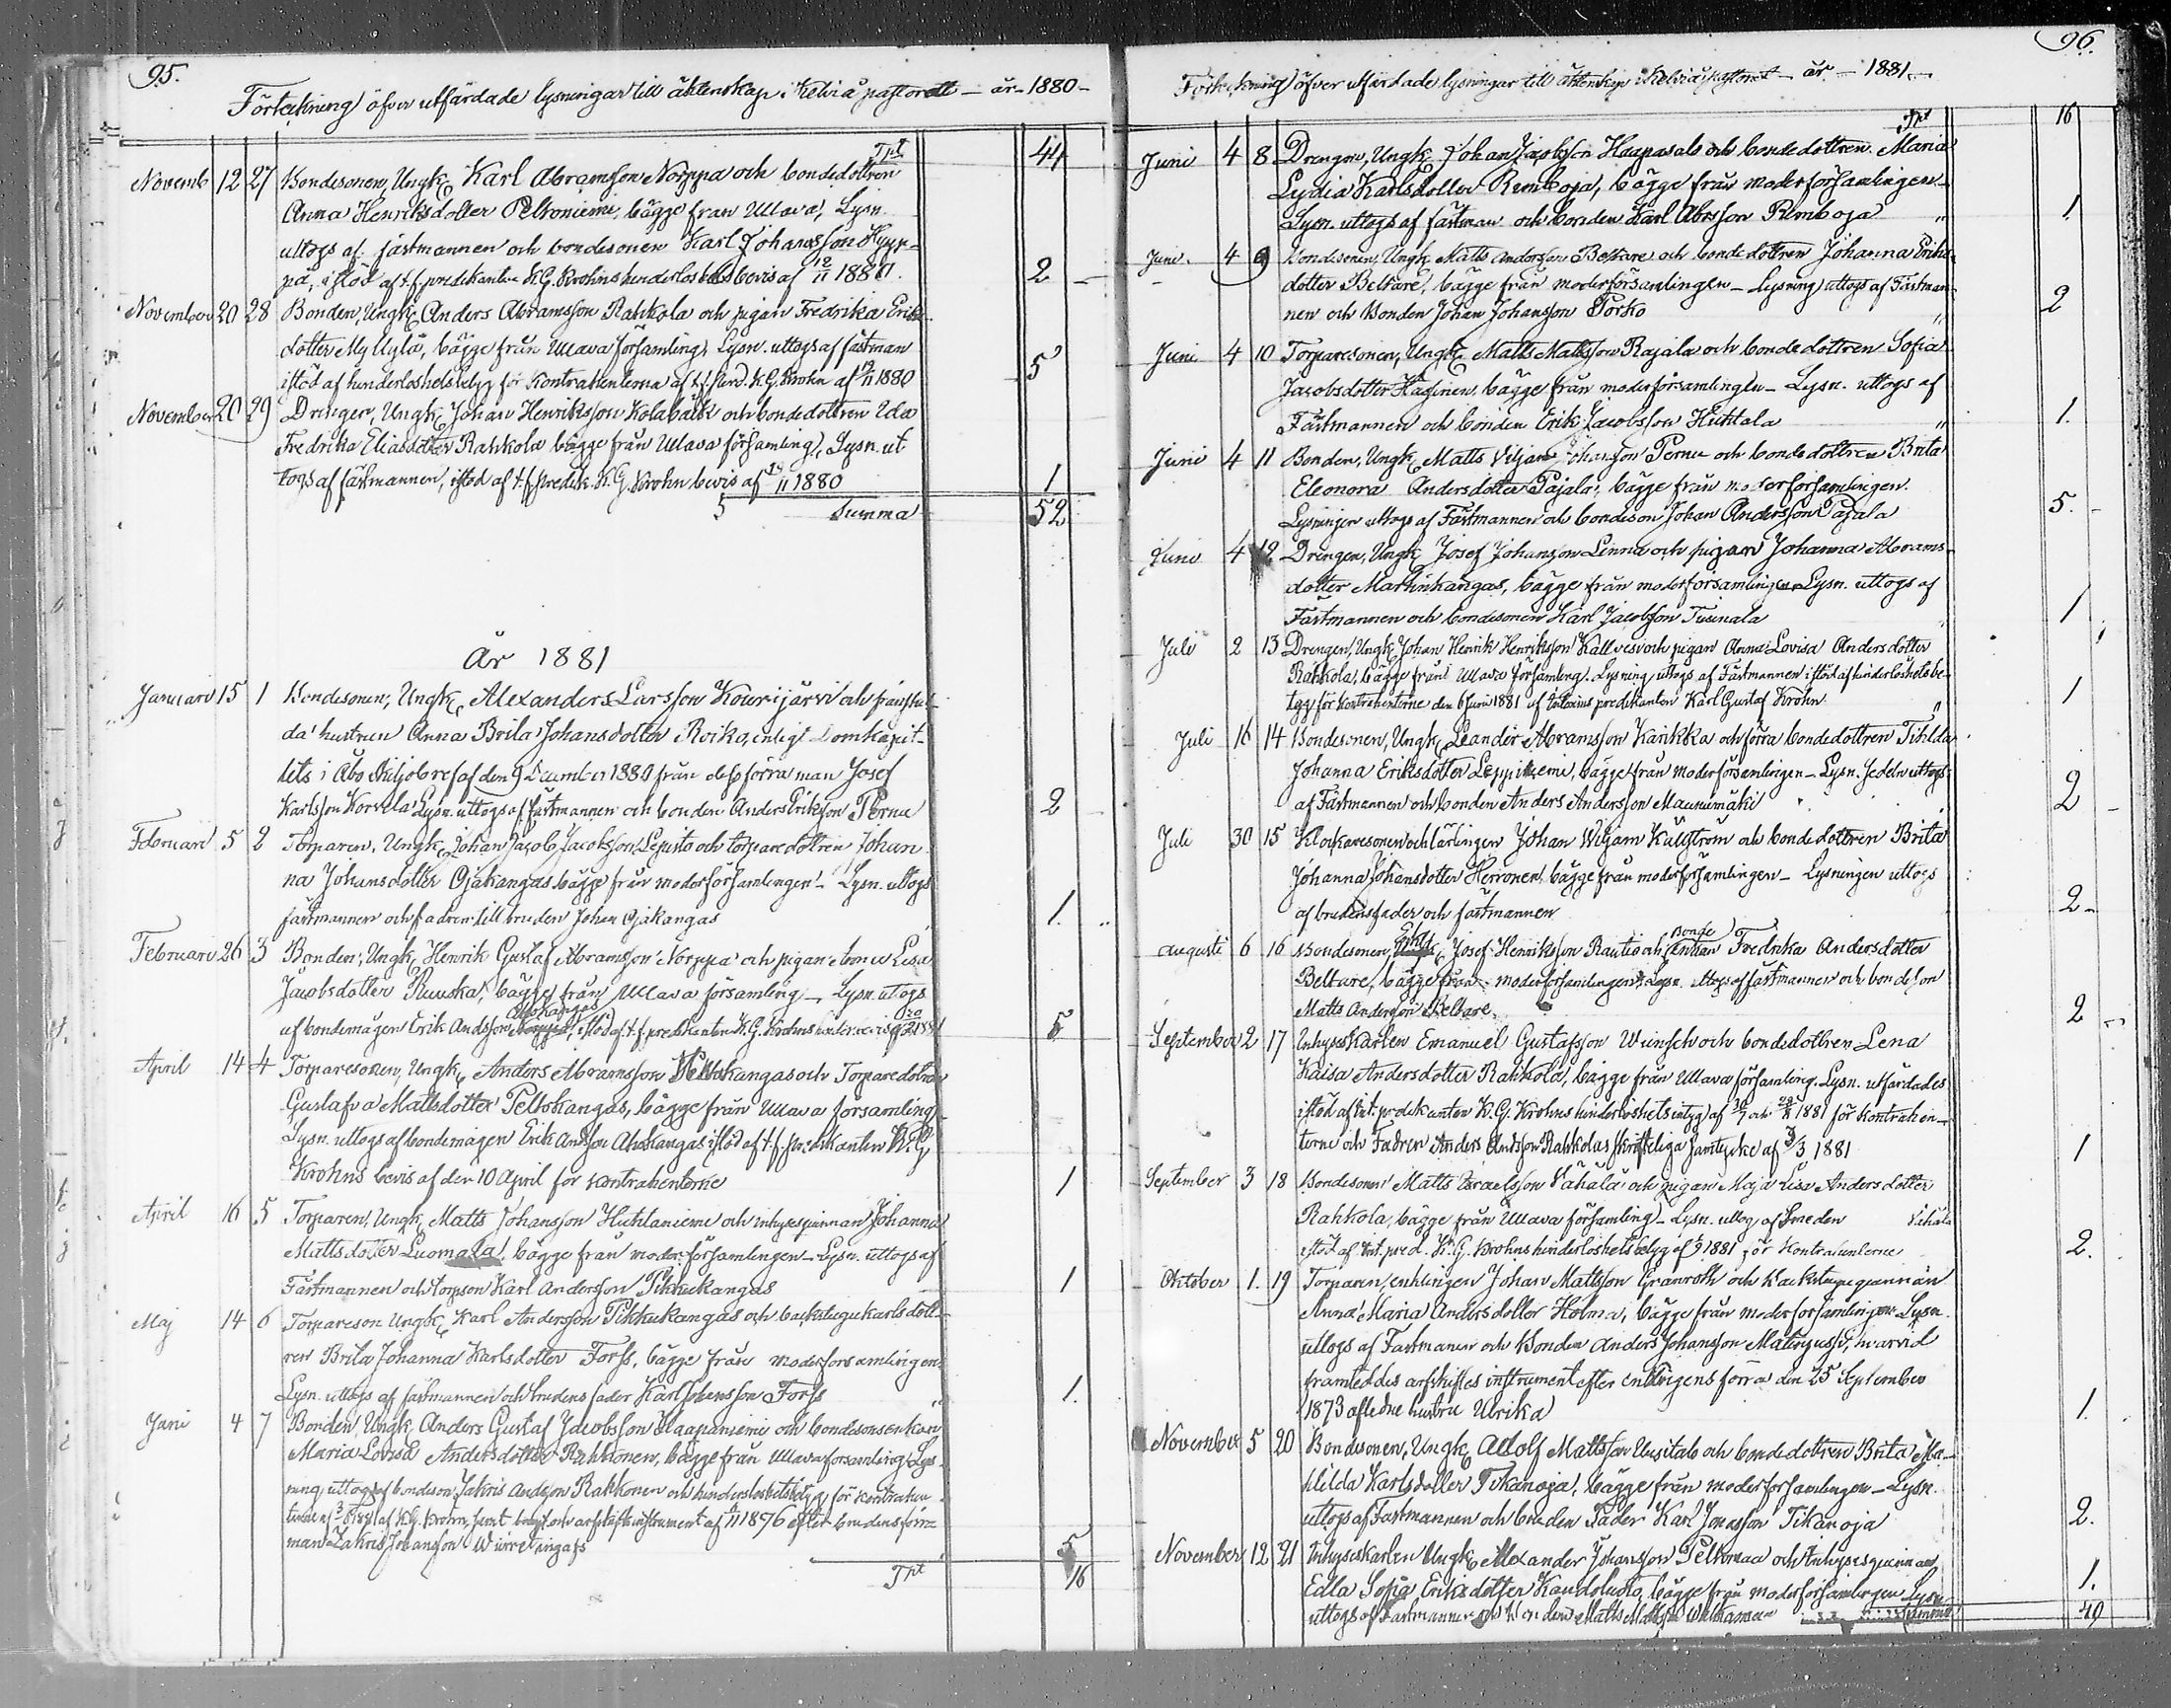 95.
Förteckning öfver utfärdade lysningar till äktenskap i Kelviå pastorat – år – 1880 –
Tpt 44
Novemb 12 27 Bondesonen, Ungk. Karl Abramsson Norppa och bondedottren
Anna Henriksdotter Peltoniemi, bägge från Ullava, Lysn.
uttogs af fästmannen och bondesonen Karl Johansson Hyyp-
pä, i stöd af t.f. predikanten K.G. Krohns hinderlöshets bevis af 12/11 1880. 2 –
November 20 28 Bonden, Ungk. Anders Abramsson Rahkola och pigan Fredrika Eriks
dotter Myllylä, bägge från Ullava församling, Lysn. uttogs af fästman
i stöd af hinderlöshets betyg för kontrahenterna af t.f. pred. K.G. Krohn af /11 1880 5
November 20 29 Drengen, Ungk. Johan Henriksson Kolabäck och bondedottren Ida
Fredrika Eliasdotter Rahkola bägge från Ullava församling, Lysn. ut
togs af fästmannen, i stöd af t.f. predik. K.G. Krohn bevis af 19/11 1880 1
5 Summa 52
År 1881
Januari 15 1 Bondesonen, Ungk. Alexander Larsson Kourijärvi och frånskil-
da hustrun Anna Brita Johansdotter Roiko, enligt Domkapit-
lets i Åbo skiljobref af den 9 December 1880 från dess förra man Josef
Karlsson Korvela Lysn. uttogs af fästmannen och bonden Anders Eriksson Pernu 2
Februari 5 2 Torparen, Ungk. Johan Jacob Jacobsson Lepistö och torparedottren Johan
na Johansdotter Ojakangas bägge från moderförsamlingen – Lysn. uttogs
fästmannen och fadren till bruden Johan Ojakangas 1.
Februari 26 3 Bonden, Ungk. Henrik Gustaf Abramsson Norppa och pigan Anna Lisa
Jacobsdotter Ruuska, bägge från Ullava församling – Lysn. uttogs
af bondemågen Erik Andsson Ahokangas, i stöd af t.f. predikanten K.G. Krohns 20/2 1881 5
April 14 4 Torparesonen, Ungk. Anders Abramsson Peltokangas och Torparedottren
Gustafva Mattsdotter Peltokangas, bägge från Ullava församling
Lysn. uttogs af bondemågen Erik Andsson Ahokangas i stöd af t.f. predikanten K.G.
Krohns bevis af den 10 April för kontrahenterne 1
April 16 5 Torparen, Ungk. Matts Johansson Huhtaniemi och inhysesqvinnan Johanna
Mattsdotter Luomala, bägge från moderförsamlingen – Lysn. uttogs af
Fästmannen och torpson Karl Andersson Pihkukangas 1
Maj 14 6 Torpareson Ungk. Karl Andersson Pihkukangas och backstugukarls dott-
ren Brita Johanna Karlsdotter Forss, bägge från moderförsamlingen
Lysn. uttogs af fästmannen och brudens fader Karl Johansson Forss 1.
Juni 4 7 Bonden, Ungk. Anders Gustaf Jacobsson Haapaniemi och bondesonsenkan
Maria Lovisa Andersdotter Rahkonen, bägge från Ullava församling Lys-
ning uttogs af bondeson Zakris Andsson Rahkonen och hinderslöshetsbetyg för kontrahen-
terne af K.G. Krohn, samt och arfskiftsinstrument af 1876 efter brudens förra
man Zakris Johansson 5
Tpt 16

96.
Förteckning öfver utfärdade lysningar till äktenskap i Kelviå pastorat – år – 1881 –
Tpt 16
Juni 4 8 Drengen, Ungk. Johan Jacobsson Haapasalo och bondedottren Maria
Lydia Karlsdotter Rimboja, bägge från moderförsamlingen –
Lysn. uttogs af fästman och bonden Karl Abrsson Rimboja 1
Juni. 4 9 Bondesonen, Ungk. Matts Andersson Beltare och bondedottren Johanna Eriks
dotter Beltare, bägge från moderförsamlingen – Lysning uttogs af Fästman-
nen och Bonden Johan Johansson Porko 2
Juni 4 10 Torparesonen, Ungk. Matts Mattsson Rajala och bondedottren Sofia
Jacobsdotter Haginen, bägge från moderförsamlingen – Lysn. uttogs af
Fästmannen och bonden Erik Jacobsson Huhtala 1.
Juni 4 11 Bonden, Ungk. Matts Viljam Johansson Pernu och bondedottren Brita
Eleonora Andersdotter Pajala, bägge från moderförsamlingen.
Lysningen uttogs af Fästmannen och bondeson Johan Andersson Pajala 5.
Juni 4 12 Drengen, Ungk. Josef Johansson Linna och pigan Johanna Abrams-
dotter Martinkangas, bägge från moderförsamlingen Lysn. uttogs af
Fästmannen och bondesonen Karl Jacobsson 1
Juli 2 13 Drengen, Ungk. Johan Henrik Henriksson Källvesi och pigan Anna Lovisa Andersdotter
Rahkola, bägge från Ullava församling. Lysning uttogs af Fästmannen i stöd af hinderlöshetsbe-
tyg för kontrahenterne den 6 Juni 1881 af predikanten Karl Gustaf Krohn 1
Juli 16 14 Bondesonen, Ungk. Leander Abramsson Kärikkä och förra bondedottren Tihlda
Johanna Eriksdotter Leppiniemi, bägge från moderförsamlingen – Lysn. sedeln uttogs
af Fästmannen och bonden Anders Andersson Maunumäki 2
Juli 30 15 Klockaresonen och lärlingen Johan Wiljam Kullström och bondedottren Brita
Johanna Johansdotter Herronen, bägge från moderförsamlingen – Lysningen uttogs
af brudens fader och fästmannen 2 –
Augusti 6 16 Bondesonen, Enkl. Josef Henriksson Rautio och Bonde Enkan Fredrika Andersdotter
Beltare, bägge från moderförsamlingen, Lysn. uttogs af fästmannen och bondeson
Matts Andersson Beltare. 2
September 2 17 Inhyseskarlen Emanuel Gustafsson Wunsch och bondedottren Lena
Kaisa Andersdotter Rahkola, bägge från Ullava församling. Lysn. utfärdades
i stöd af predikanten K.G. Krohns hinderlöshetsintyg af 30/7 och 28/8 1881 för kontrahen-
terne och Fadren Anders Andsson Rahkolas skrifteliga samtycke af 3/3 1881 1
September 3 18 Bondesonen Matts Israelsson Vähälä och pigan Maja Lisa Andersdotter
Rahkola, bägge från Ullava församling – Lysn. uttog af Smeden Vähälä
i stöd af pred. K.G. Krohns hinderlöshets betyg af 1881 för kontrahenterne 2.
Oktober 1. 19 Torparen, enklingen Johan Mattsson Granroth och Backstuguqvinnan
Anna Maria Andersdotter Holma, bägge från moderförsamlingen Lysn.
uttogs af Fästmannen och Bonden Anders Johansson Matinjussi, hvarvid
framteddes arfskiftes instrument efter enklingens förra den 25 September
1873 aflidne hustru Ulrika 1.
November 5 20 Bondesonen, Ungk. Adolf Mattsson Uusitalo och bondedottren Brita Ma-
thilda Karlsdotter Tikanoja, bägge från moderförsamlingen – Lysn.
uttogs af Fästmannen och bruden Fader Karl Jonasson Tikanoja 2.
November 12 21 Inhyseskarlen Ungk. Alexander Johansson Peltomaa och Inhysesqvinnan
Edla Sofia Eriksdotter Kandolusto, bägge från moderförsamlingen Lysn. 1.
uttogs af Fästmannen och Bonden Matts Mattsson Summa 40